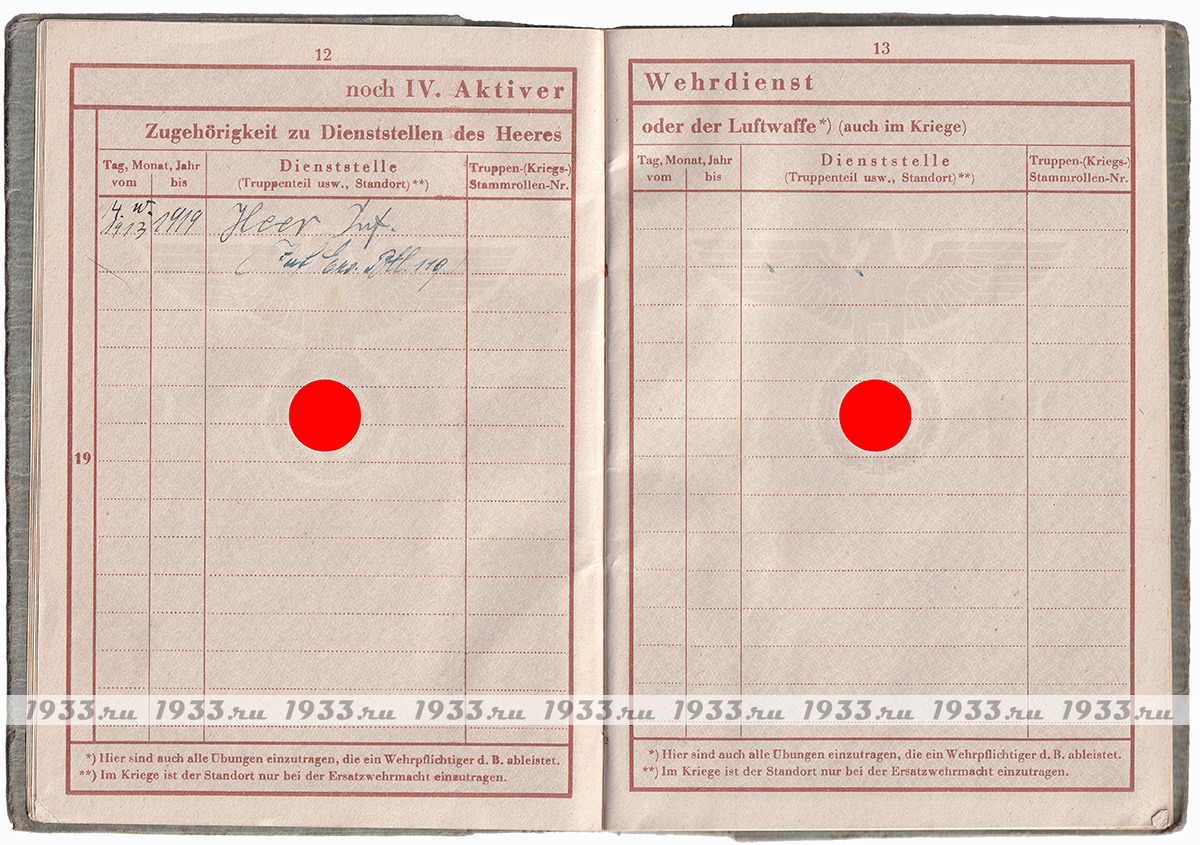 12
noch IV. Aktiver
Zugehörigkeit zu Dienststellen des Heeres
Tag, Monat, Jahr
vom bis
Dienststelle
(Truppenteil usw., Standort)**)
Truppen-(Kriegs-)
Stammrollen-Nr.
1913 1919 Heer Inf.
119)
19
*) Hier sind auch alle Übungen einzutragen, die ein Wehrpflichtiger d. B. ableistet.
**) Im Kriege ist der Standort nur bei der Ersatzwehrmacht einzutragen.
13
Wehrdienst
oder der Luftwaffe*) (auch im Kriege)
Tag, Monat, Jahr
vom bis
Dienststelle
(Truppenteil usw., Standort)**)
Truppen-(Kriegs-)
Stammrollen-Nr.
*) Hier sind auch alle Übungen einzutragen, die ein Wehrpflichtiger d. B. ableistet.
**) Im Kriege ist der Standort nur bei der Ersatzwehrmacht einzutragen.
1933.ru 1933.ru 1933.ru 1933.ru 1933.ru 1933.ru 1933.ru 1933.ru 1933.ru